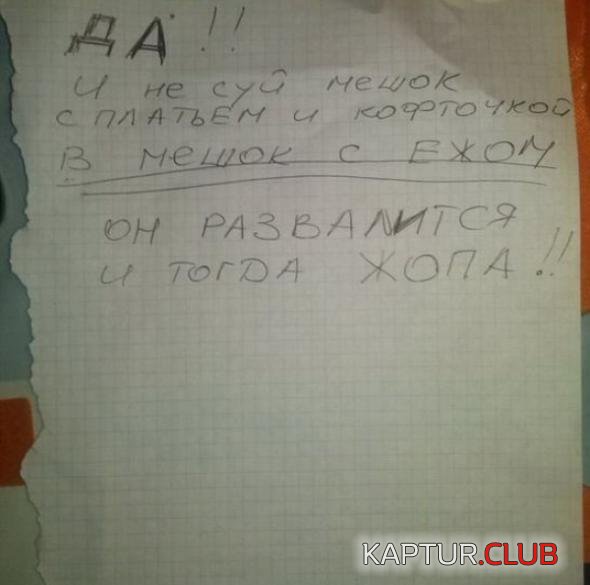 ДА!!
и не суй мешок
с платьем и кофточкой
В МЕШОК С ЕЖОМ
ОН РАЗВАЛИТСЯ
И ТОГДА ЖОПА!!
KAPTUR.CLUB